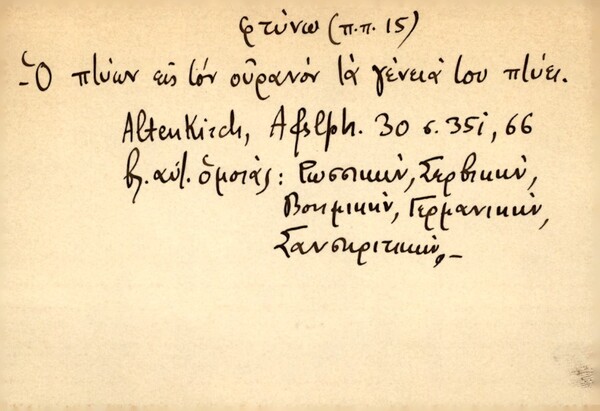 φτύνω (π.π. 15)
-Ὁ πτύων εἰς τόν οὐρανόν τά γένειά του πτύει.
Altenkirch, Afslph. 30 σ. 351, 66
βλ. αὐτ. ὁμοίας: Ρωσσικήν, Σερβικήν,
Βοημικήν, Γερμανικήν,
Σανσκριτικήν,-